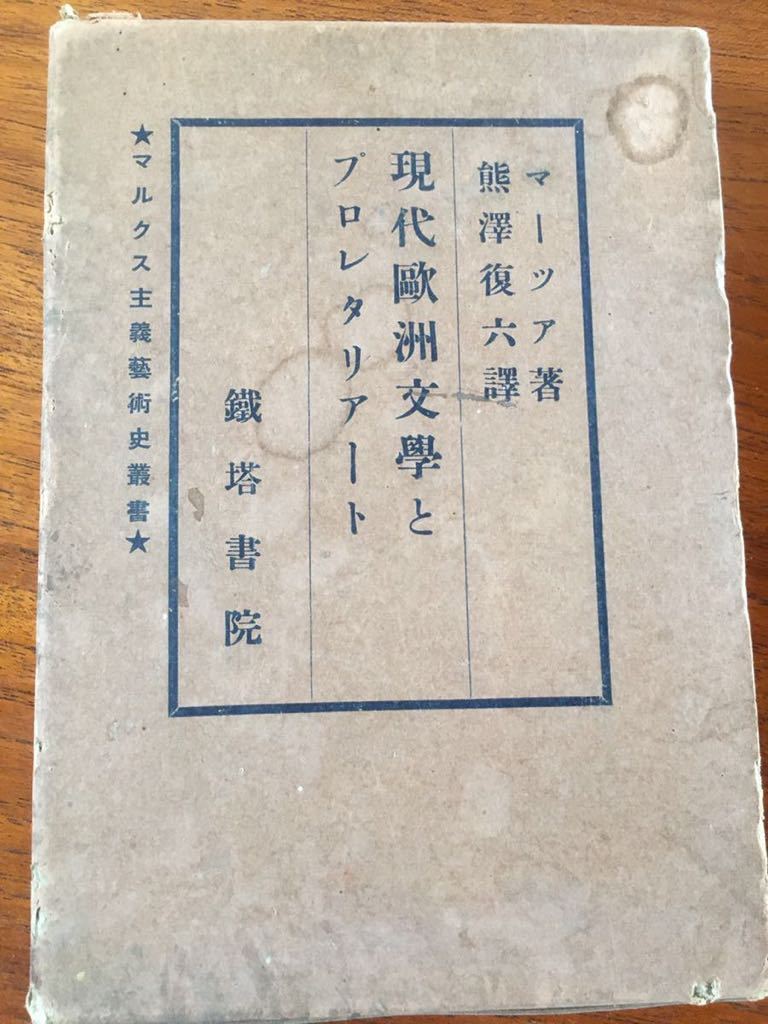 マーツア著
熊澤復六譯
現代歐洲文學と
プロレタリアート
鐵塔書院
★マルクス主義藝術史叢書★